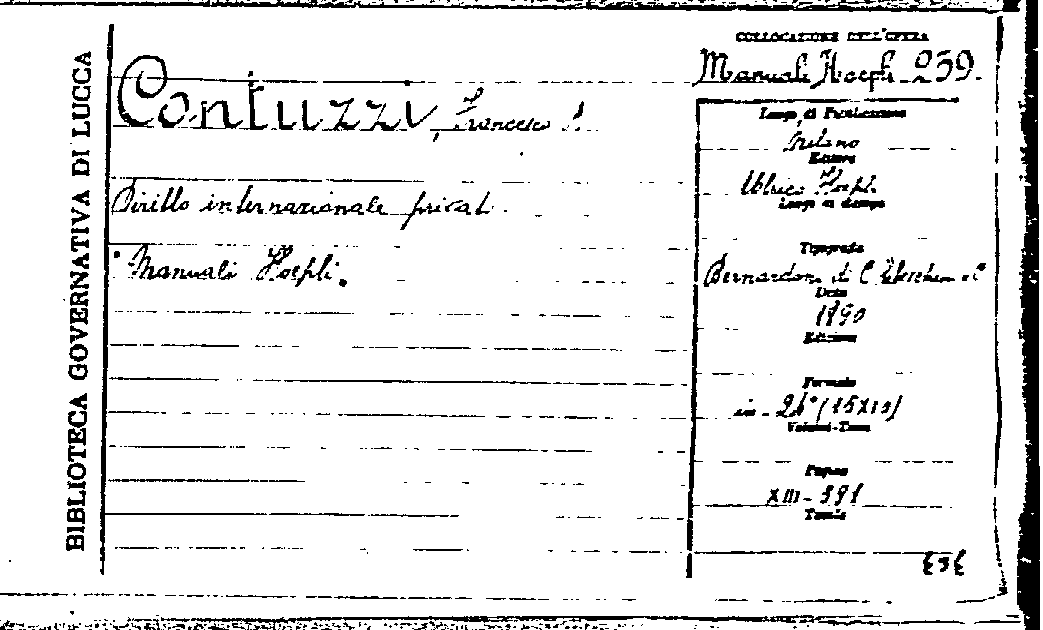 BIBLIOTECA GOVERNATIVA DI LUCCA
COLLOCAZIONE DELL'OPERA
Manuali Hoepli 239.
Contuzzi, Francesco
Diritto internazionale privat.
"Manuali Hoepli.
Luogo di Pubblicazione
Milano
Editore
Ulrico Hoepli
Luogo di stampa
Tipografia
Bernardoni di C.
Data
1890
Edizione
Formato
in-24° (15x10)
Volumi-Tomi
Pagine
XIII-391
Tavole